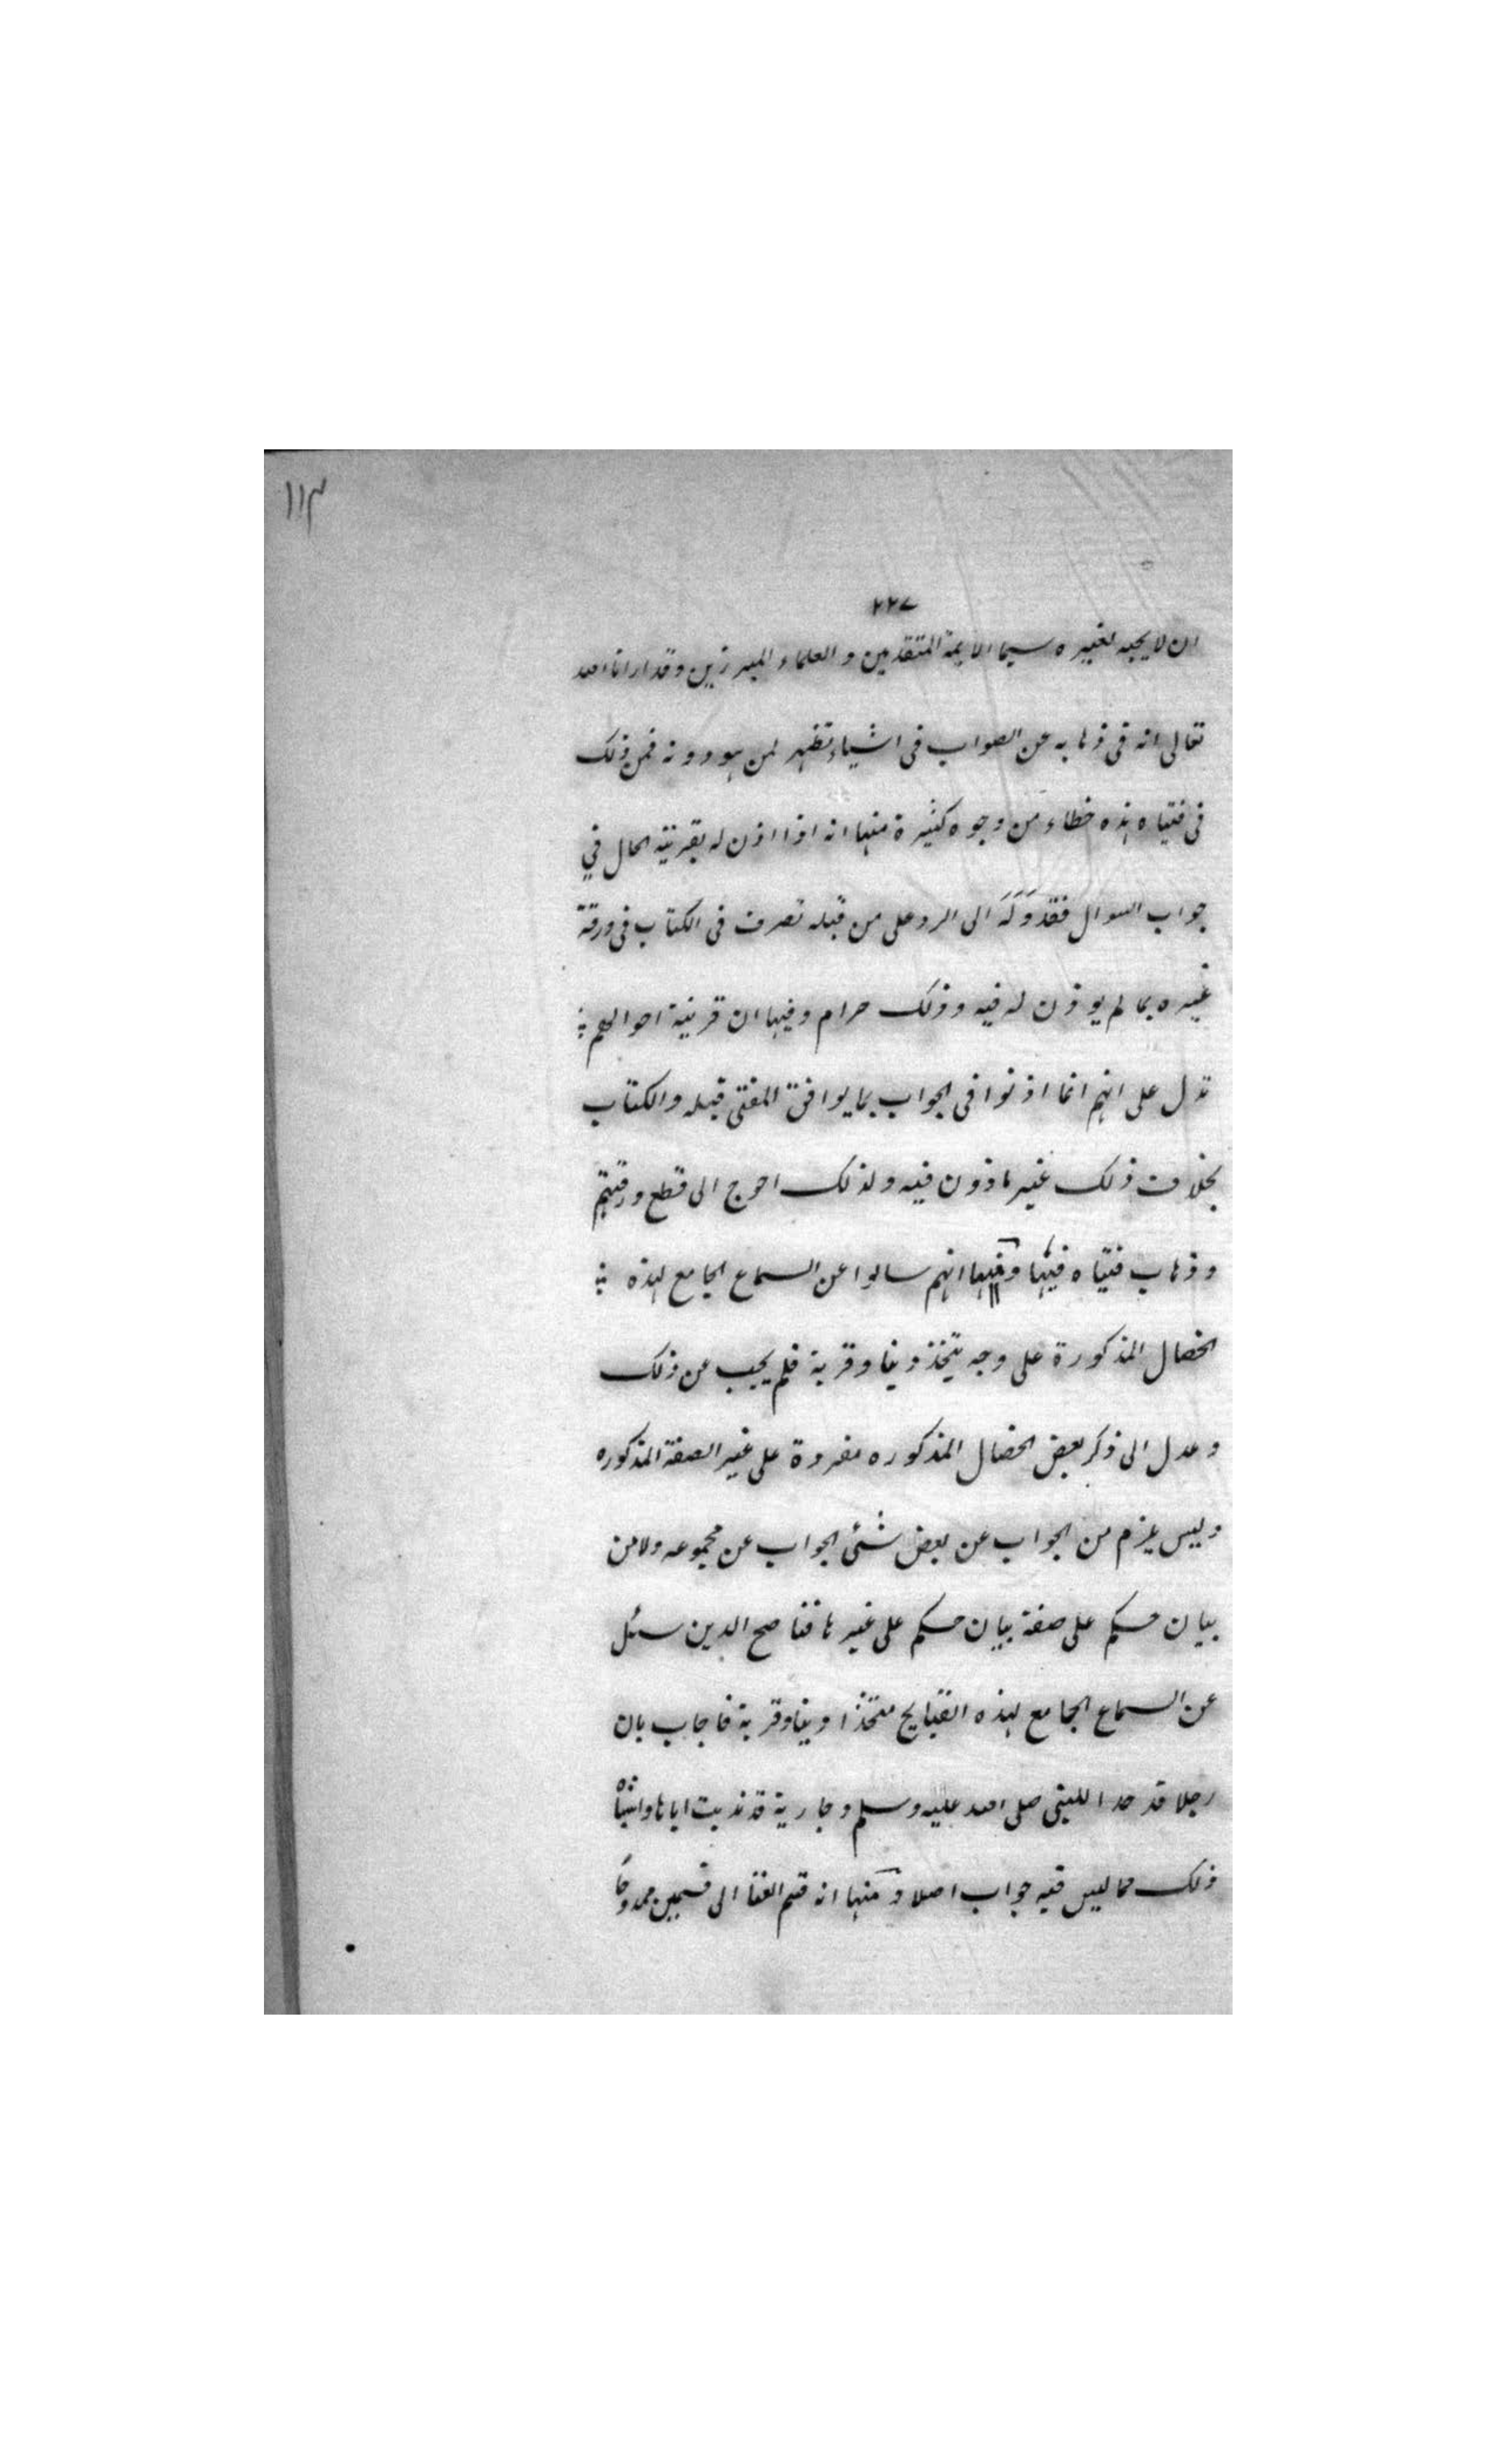 ١١٣
٢٢٧
ان لا يجبه لغيره سيما الايمة المتقدمين و العلماء المبرزين وقد ارانا الله
تعالى انه فى ذهابه عن الصواب فى اشياء تظهر لمن هو دونه فمن ذلك
فى فتياه هذه خطاء من وجوه كثيرة منها انه اذا اذن له بقرينة الحال في
جواب السوال فقد وَلَه الى الرد على من قبله تصرف فى الكتاب فى ورقة
غيره بما لم يوذن له فيه و ذلك حرام و فيها ان قرينة احوالهم
تدل على انهم انما اذنوا فى الجواب بما يوافق المفتى قبله و الكتاب
بخلاف ذلك غير ماذون فيه و لذلك احوج الى قطع ورقتهم
و ذهاب فتياه فيها و فيها انهم سالوا عن السماع الجامع لهذه
الخصال المذكورة على وجه يتخذ دينا و قربة فلم يجب عن ذلك
و عدل الى ذكر بعض الخصال المذكوره مفردة على غير الصفة المذكوره
و ليس يلزم من الجواب عن بعض شئى الجواب عن مجموعه ولا من
بيان حكم على صفة بيان حكم على غيرها فنا صح الدين سئل
عن السماع الجامع لهذه القبايح متخذا دينا و قربة فاجاب بان
رجلا قد حدا للنبى صلى الله عليه وسلم و جارية قد ندبت اباها و اشباه
ذلك مما ليس فيه جواب اصلا و منها انه قسم الغنا الى قسمين ممدوحا